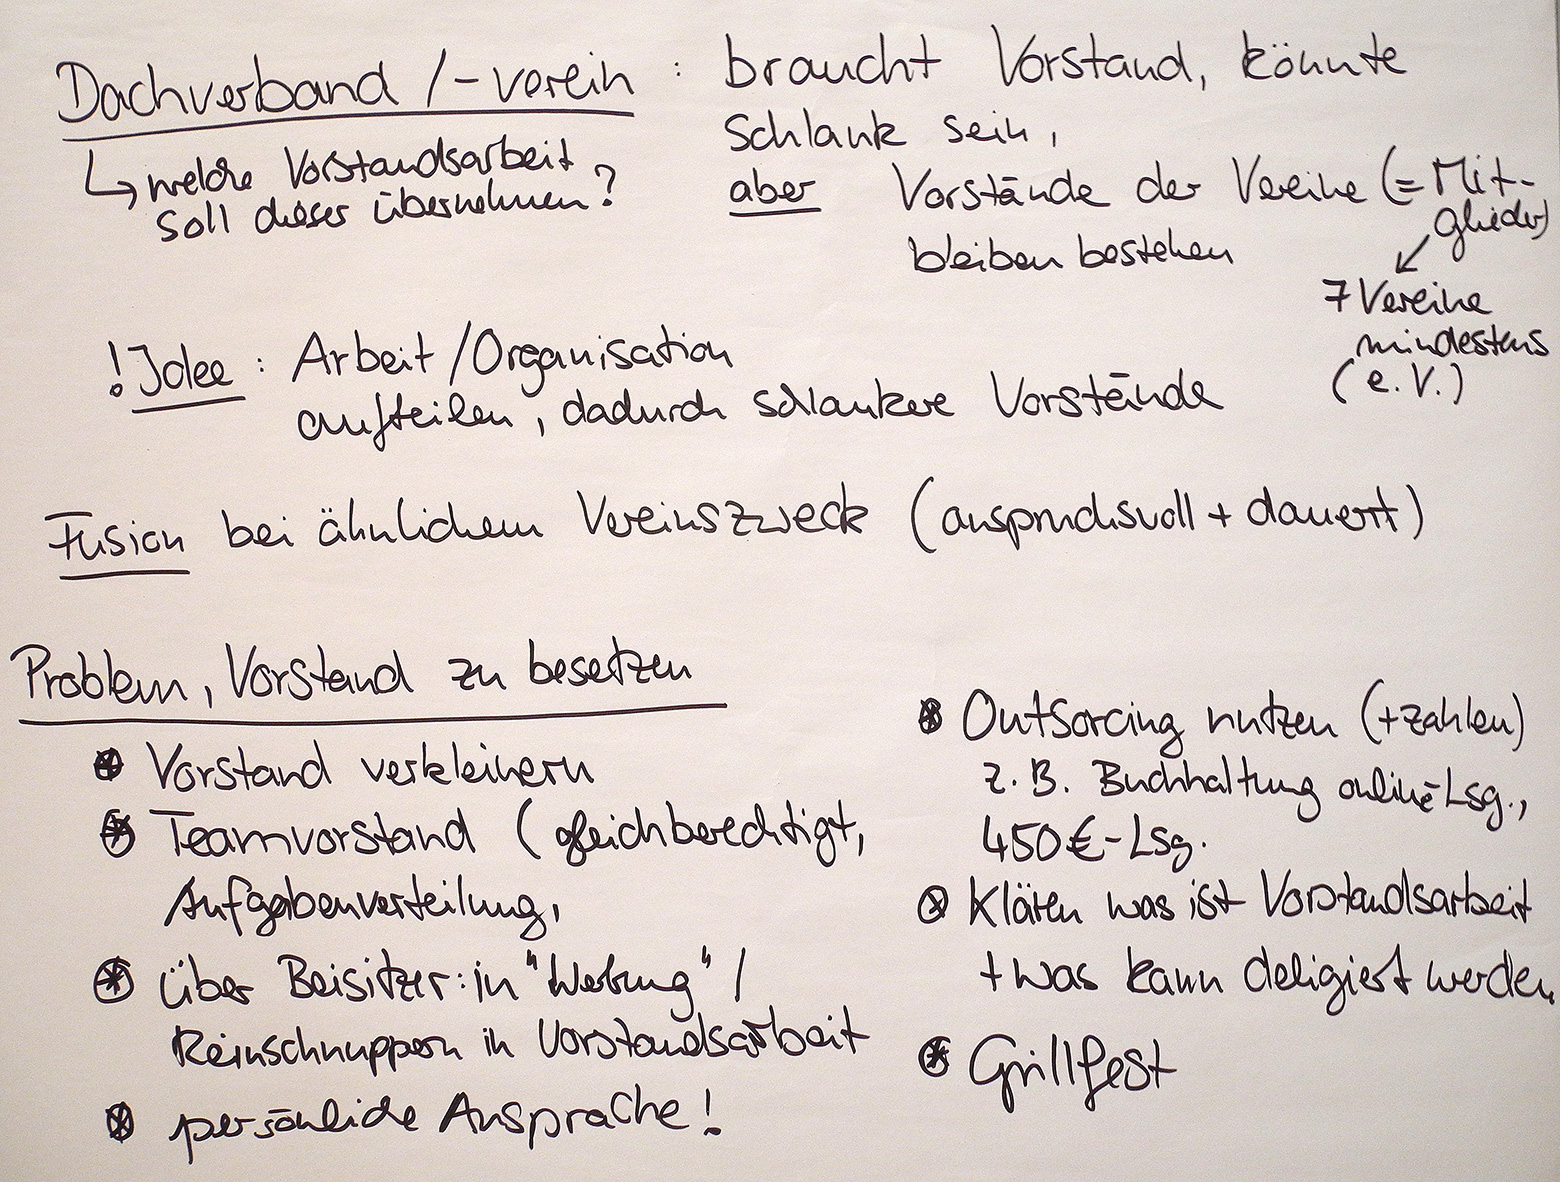 Dachverband /-verein : braucht Vorstand, könnte
schlank sein,
↳ welche Vorstandsarbeit
soll dieser übernehmen?
aber Vorstände der Vereine (= Mit-
glieder)
bleiben bestehen
7 Vereine
mindestens
(e.V.)
! Idee : Arbeit/Organisation
aufteilen, dadurch schlankere Vorstände
Fusion bei ähnlichem Vereinszweck (anspruchsvoll + dauert)
Problem, Vorstand zu besetzen
* Vorstand verkleinern
* Teamvorstand (gleichberechtigt,
Aufgabenverteilung,
* über Beisitzer:in "Werbung" /
Reinschnuppern in Vorstandsarbeit
* persönliche Ansprache!
* Outsorcing nutzen (+zahlen)
z.B. Buchhaltung online-Lsg.,
450€-Lsg.
* Klären was ist Vorstandsarbeit
+ was kann deligiert werden
* Grillfest